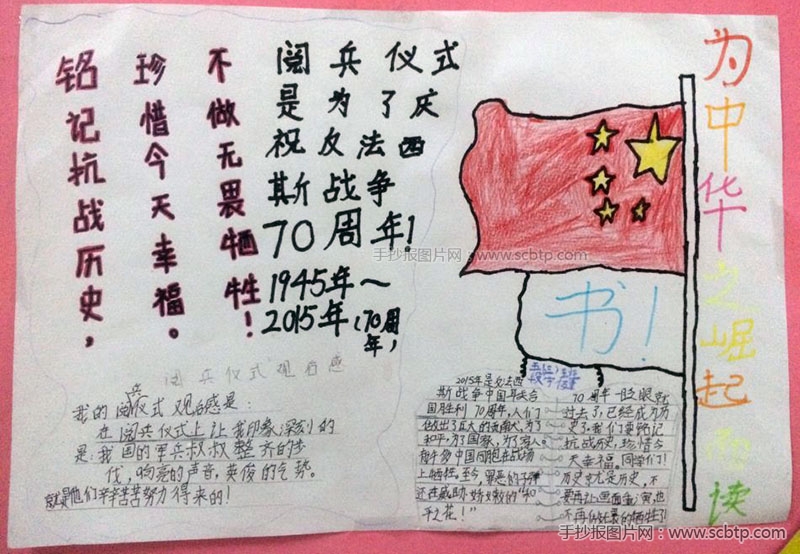 铭记抗战历史，
珍惜今天幸福。
不做无畏牺牲！
阅兵仪式
是为了庆
祝反法西
斯战争
70周年！
1945年～
2015年（70周
年，
为中华之崛起而读
书！
手抄报图片网：www.scbtp.com
阅兵仪式观后感
我的阅兵仪式观后感是：
在阅兵仪式上让我印象深刻的
是：我国的军兵叔叔整齐的步
伐，响亮的声音，英俊的气势。
就是他们辛辛苦苦努力得来的！
2015年是反法西
斯战争中国联合
国胜利70周年，人们
做出了巨大的贡献，为了
和平，为了国家，为了穷人。
有许多中国同胞在战场
上牺牲。至今，罪恶的子弹
还在威胁娇嫩的“和
平之花！”
70周年一眨眼就
过去了，已经成为历
史了。我们要铭记
抗战历史，珍惜今
天幸福。同学们！
历史就是历史，不
要再让画面重演，也
不再做无畏的牺牲了！
手抄报图片网：www.scbtp.com